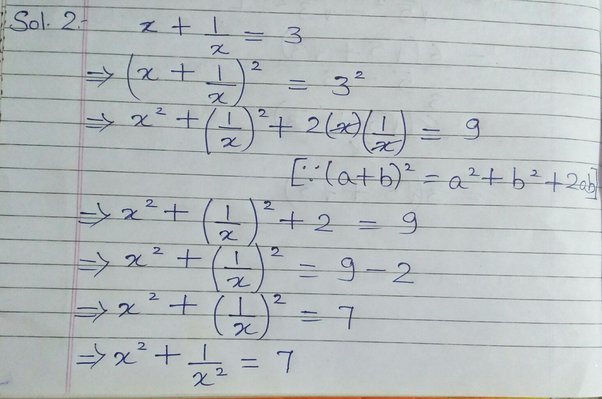 Sol. 2:- x + 1/x = 3
⇒ (x + 1/x)² = 3²
⇒ x² + (1/x)² + 2(x)(1/x) = 9
[∵ (a+b)² = a² + b² + 2ab]
⇒ x² + (1/x)² + 2 = 9
⇒ x² + (1/x)² = 9 - 2
⇒ x² + (1/x)² = 7
⇒ x² + 1/x² = 7